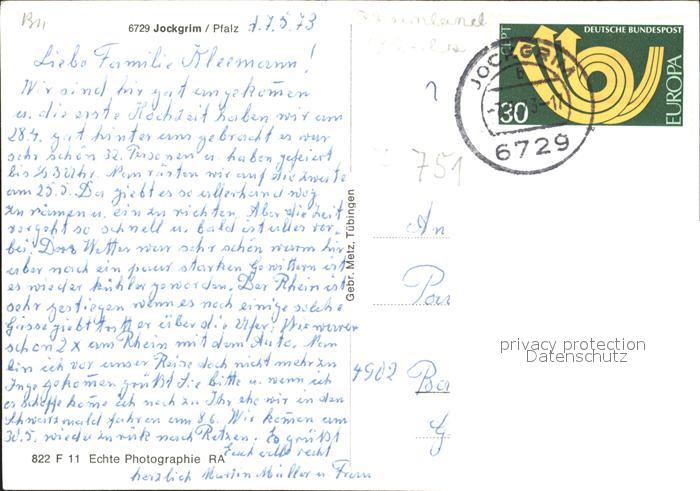 6729 Jockgrim / Pfalz d. 7.5.73
Liebe Familie Kleemann!
Wir sind hir gut angekomen
u. die erste Hochzeit haben wir am
28.4. gut hinter uns gebracht es war
sehr schön 32. Personen u. haben gefeiert
bis ½ 3 Uhr. Nun rüsten wir auf die zweite
am 25.5. Da giebt es so allerhand weg
zu räumen u. ein zu richten. Aber die Zeit
vergeht so schnell u. bald ist alles vor-
bei. Das Wetter war sehr schön warm hir
aber nach ein paar starken Gewittern ist
es wieder kühler geworden. Der Rhein ist
sehr gestiegen wenn es noch einige solche
Güsse giebt tritt er über die Ufer. Wir waren
schon 2 x am Rhein mit dem Auto. Nun
bin ich vor unser Reise doch nicht mehr zu
Inge gekomen grüßt Sie bitte u. wenn ich
es schaffe kome ich noch zu Ihr ehe wir in den
Schwarzwald fahren am 8.6. Wir komen am
30.5. wieder zurük nach Es grüßt
Euch alle recht
herzlich Martin Müller u. Frau
822 F 11 Echte Photographie RA
Gebr. Metz, Tübingen
DEUTSCHE BUNDESPOST
CEPT
30
EUROPA
JOCKGRIM
b
6729
751
An
4902
G
privacy protection
Datenschutz